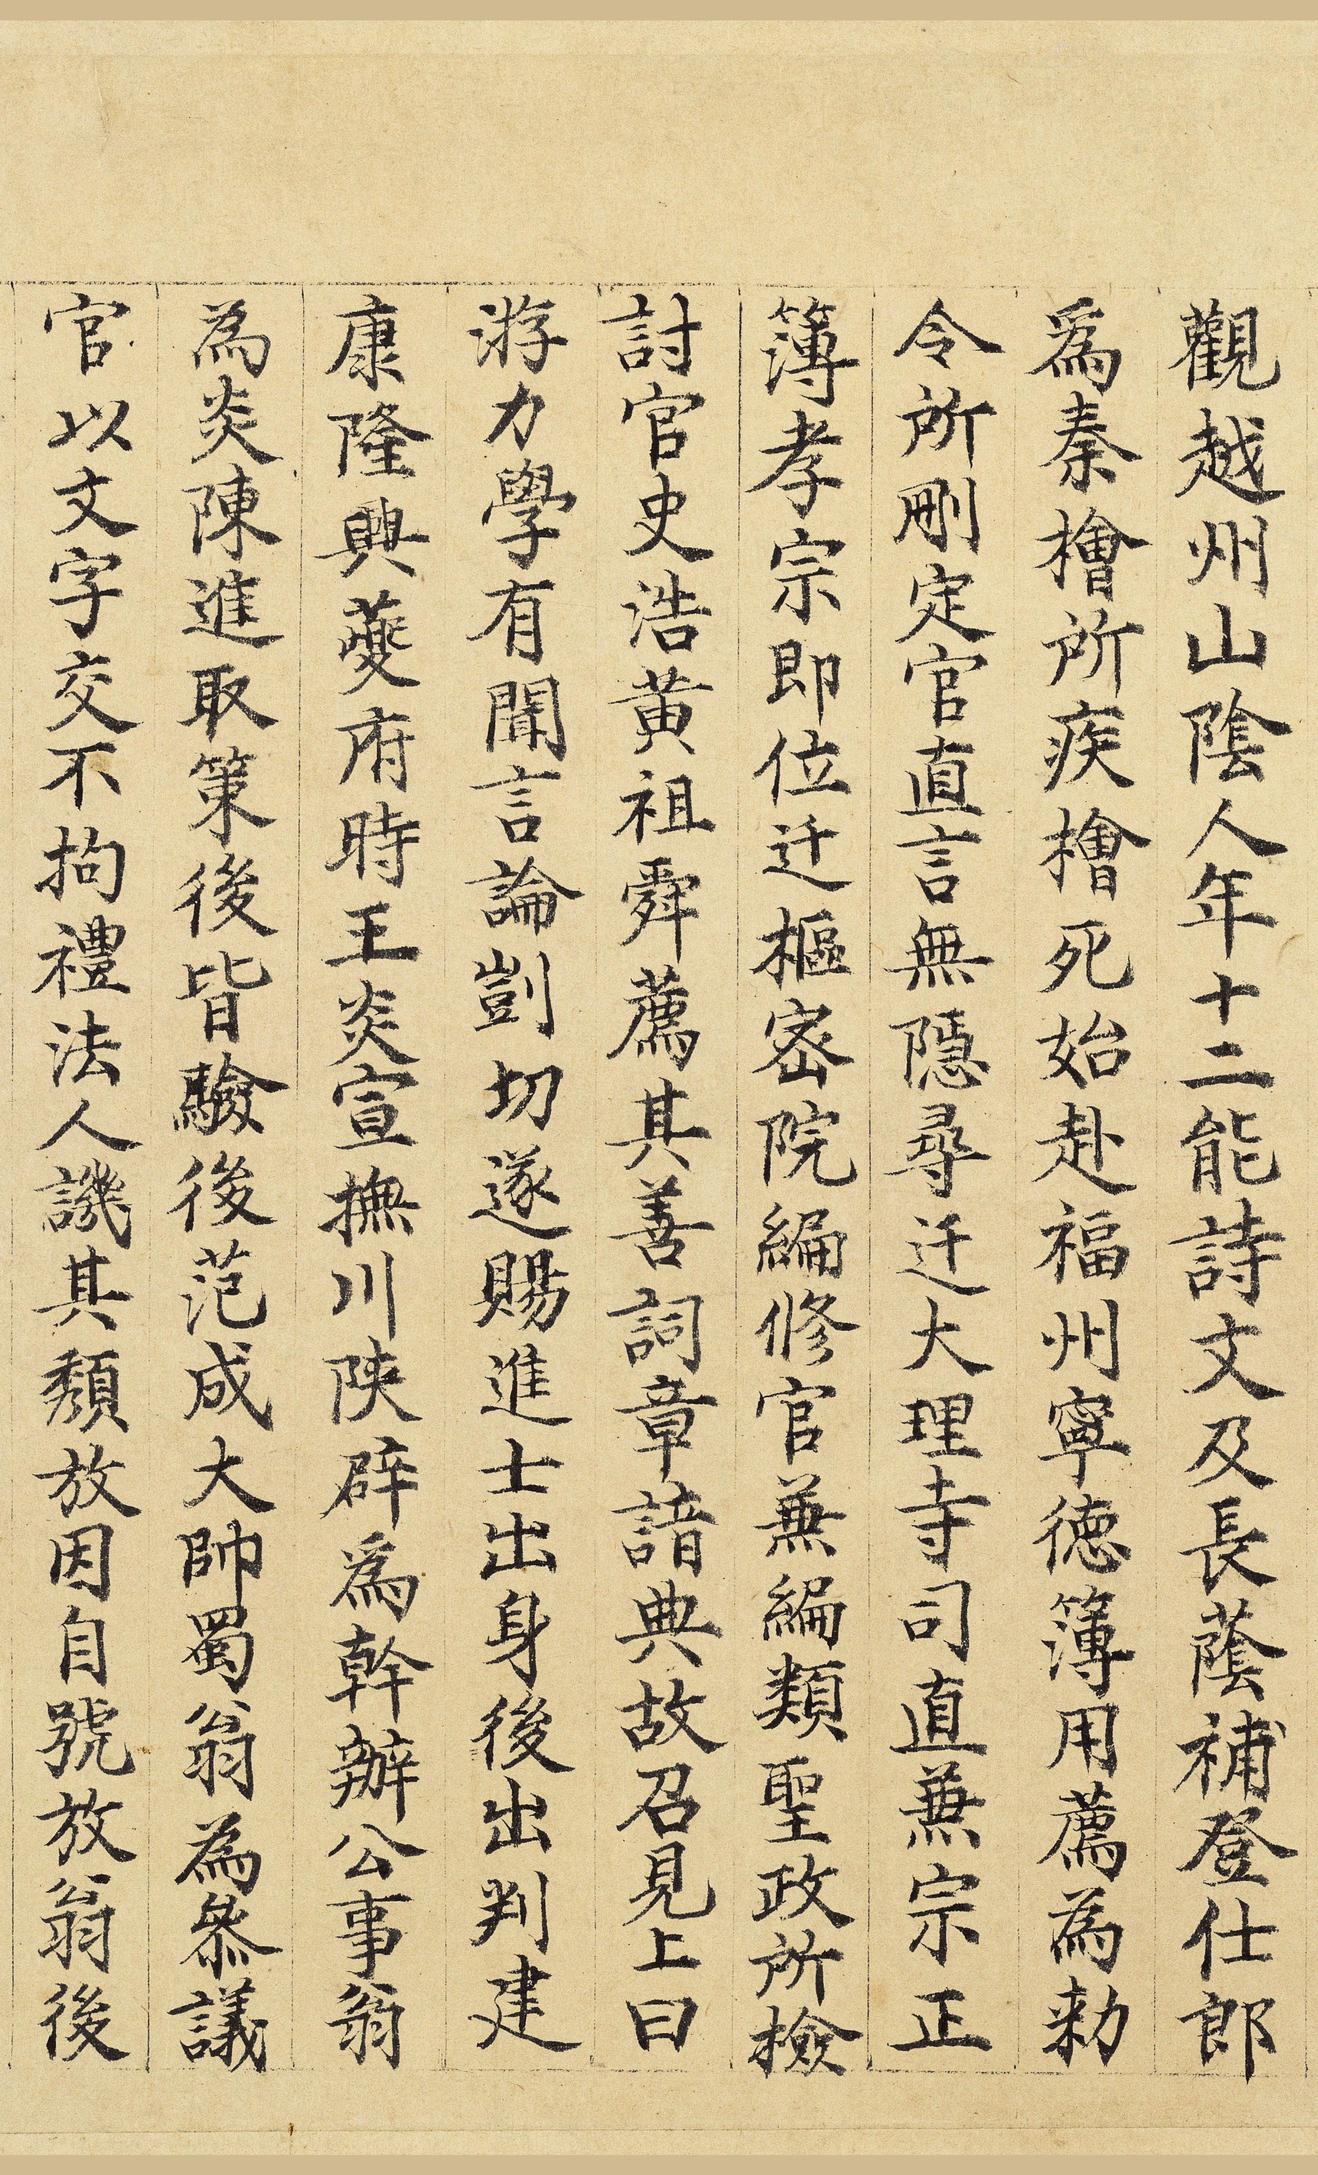 觀越州山陰人年十二能詩文及長蔭補登仕郎
爲秦檜所疾檜死始赴福州寧德簿用薦為勑
令所刪定官直言無隱尋迁大理寺司直蕪宗正
簿孝宗即位迁樞密院編修官蕪編類聖政所檢
討官史浩黄祖舜薦其善詞章諳典故召見上曰
游力學有聞言論剴切遂賜進士出身後出判建
康隆興夔府時王炎宣撫川陝辟爲幹辦公事翁
為炎陳進取策後皆驗後范成大帥蜀翁為叅議
官以文字交不拘禮法人譏其頹放因自號放翁後